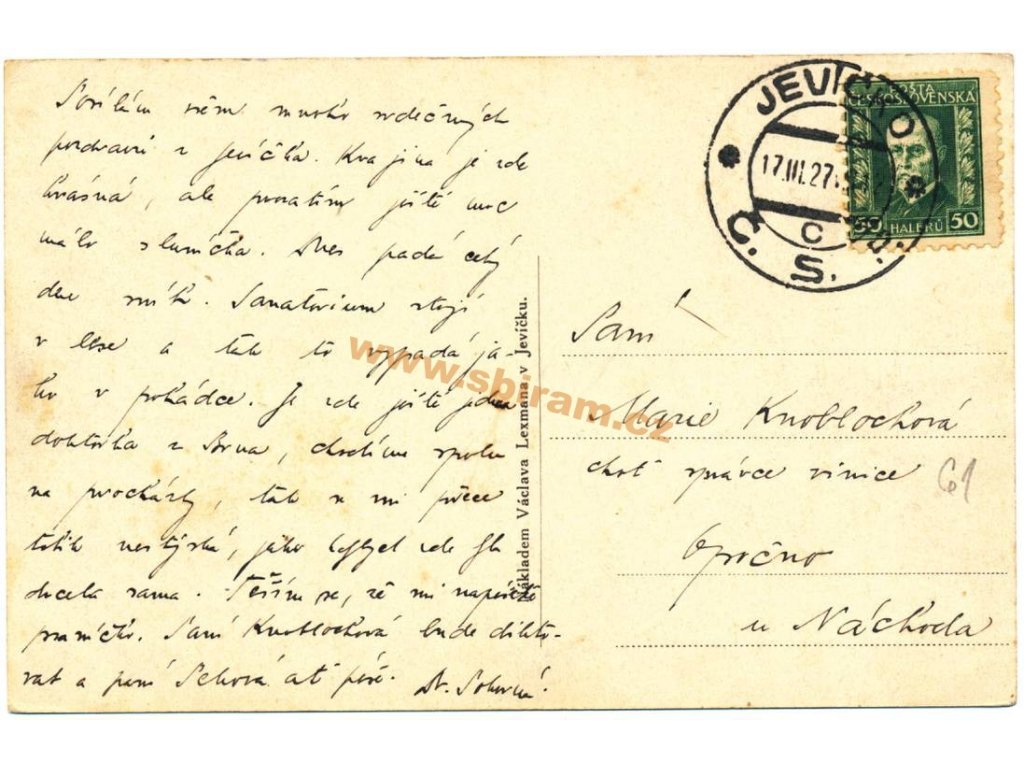 Posílám všem mnoho srdečných
pozdravů z Jevíčka. Krajina je zde
krásná, ale prozatím ještě moc
málo sluníčka. Dnes padá celý
den sníh. Sanatorium stojí
v lese a tak to vypadá ja-
ko v pohádce. Je zde ještě jedna
doktorka z Brna, chodíme spolu
na procházky, tak se mi přece
tolik nestýská, jako kdybych zde
byla sama. Těším se, že mi napíšete
psaníčko. Paní Knoblochová bude dikto-
vat a paní ať píše.
JEVÍČKO
17.III.27
Č. S. R.
c
POŠTA
ČESKOSLOVENSKÁ
50 HALÉŘŮ 50
Paní
Marie Knoblochová
choť správce vinice
61
Opočno
u Náchoda
Nákladem Václava Lexmana v Jevíčku.
www.sbiram.cz